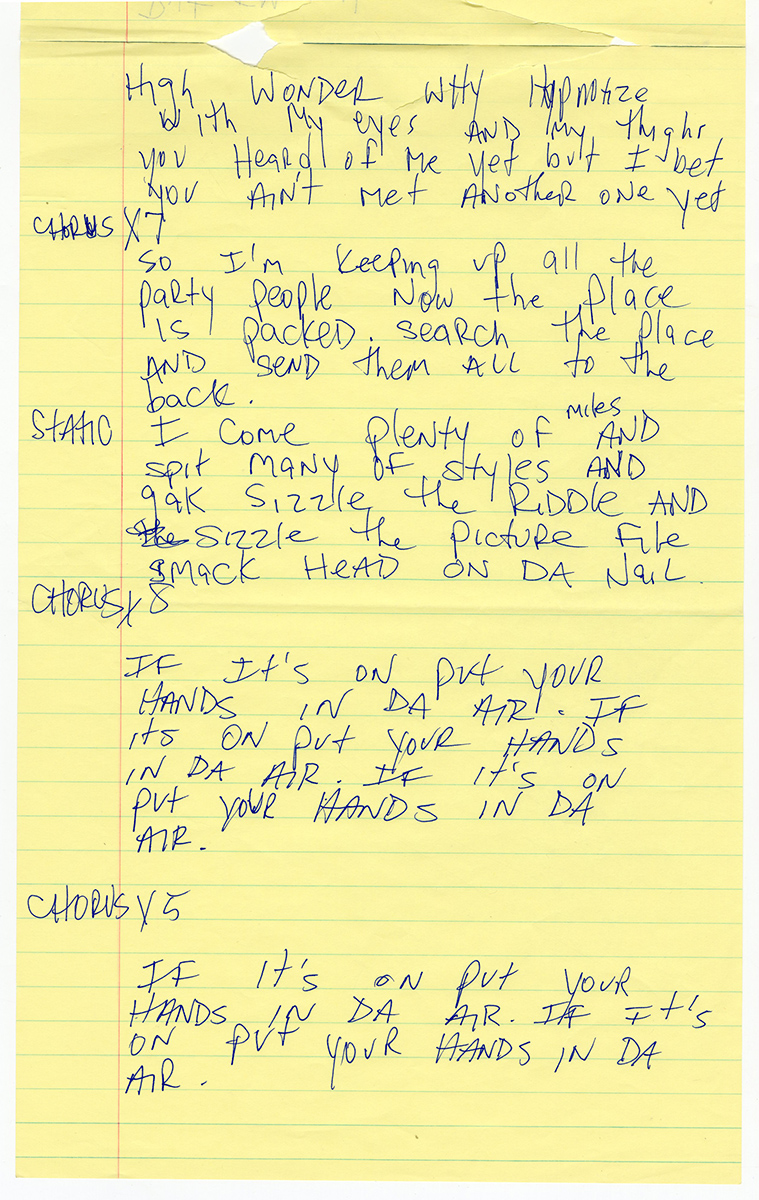 HigH WONDER WHY HypNotize
With My eyes AND My thighs
you Heard of Me yet but I bet
you AiN't Met ANOtHER ONe yet
CHORUS X7
SO I'm Keeping up all the
paRty people Now the place
IS packed. SEARCH the place
AND SEND them ALL to the
back.
STATIC I COme plenty of miles AND
spit MANy OF styles AND
gak SIZZLE the RiDDLe AND
SIZZLE the PICTURE File
SMACK HeAD ON DA NaiL.
CHORUS X 8
IF It's ON put YOUR
HANDS IN DA AIR. IF
its ON put YOUR HANDS
IN DA AIR. IF It's ON
put YOUR HANDS IN DA
AIR.
CHORUS X 5
IF It's ON put YOUR
HANDS IN DA AIR. IF It's
ON put YOUR HANDS IN DA
AIR.